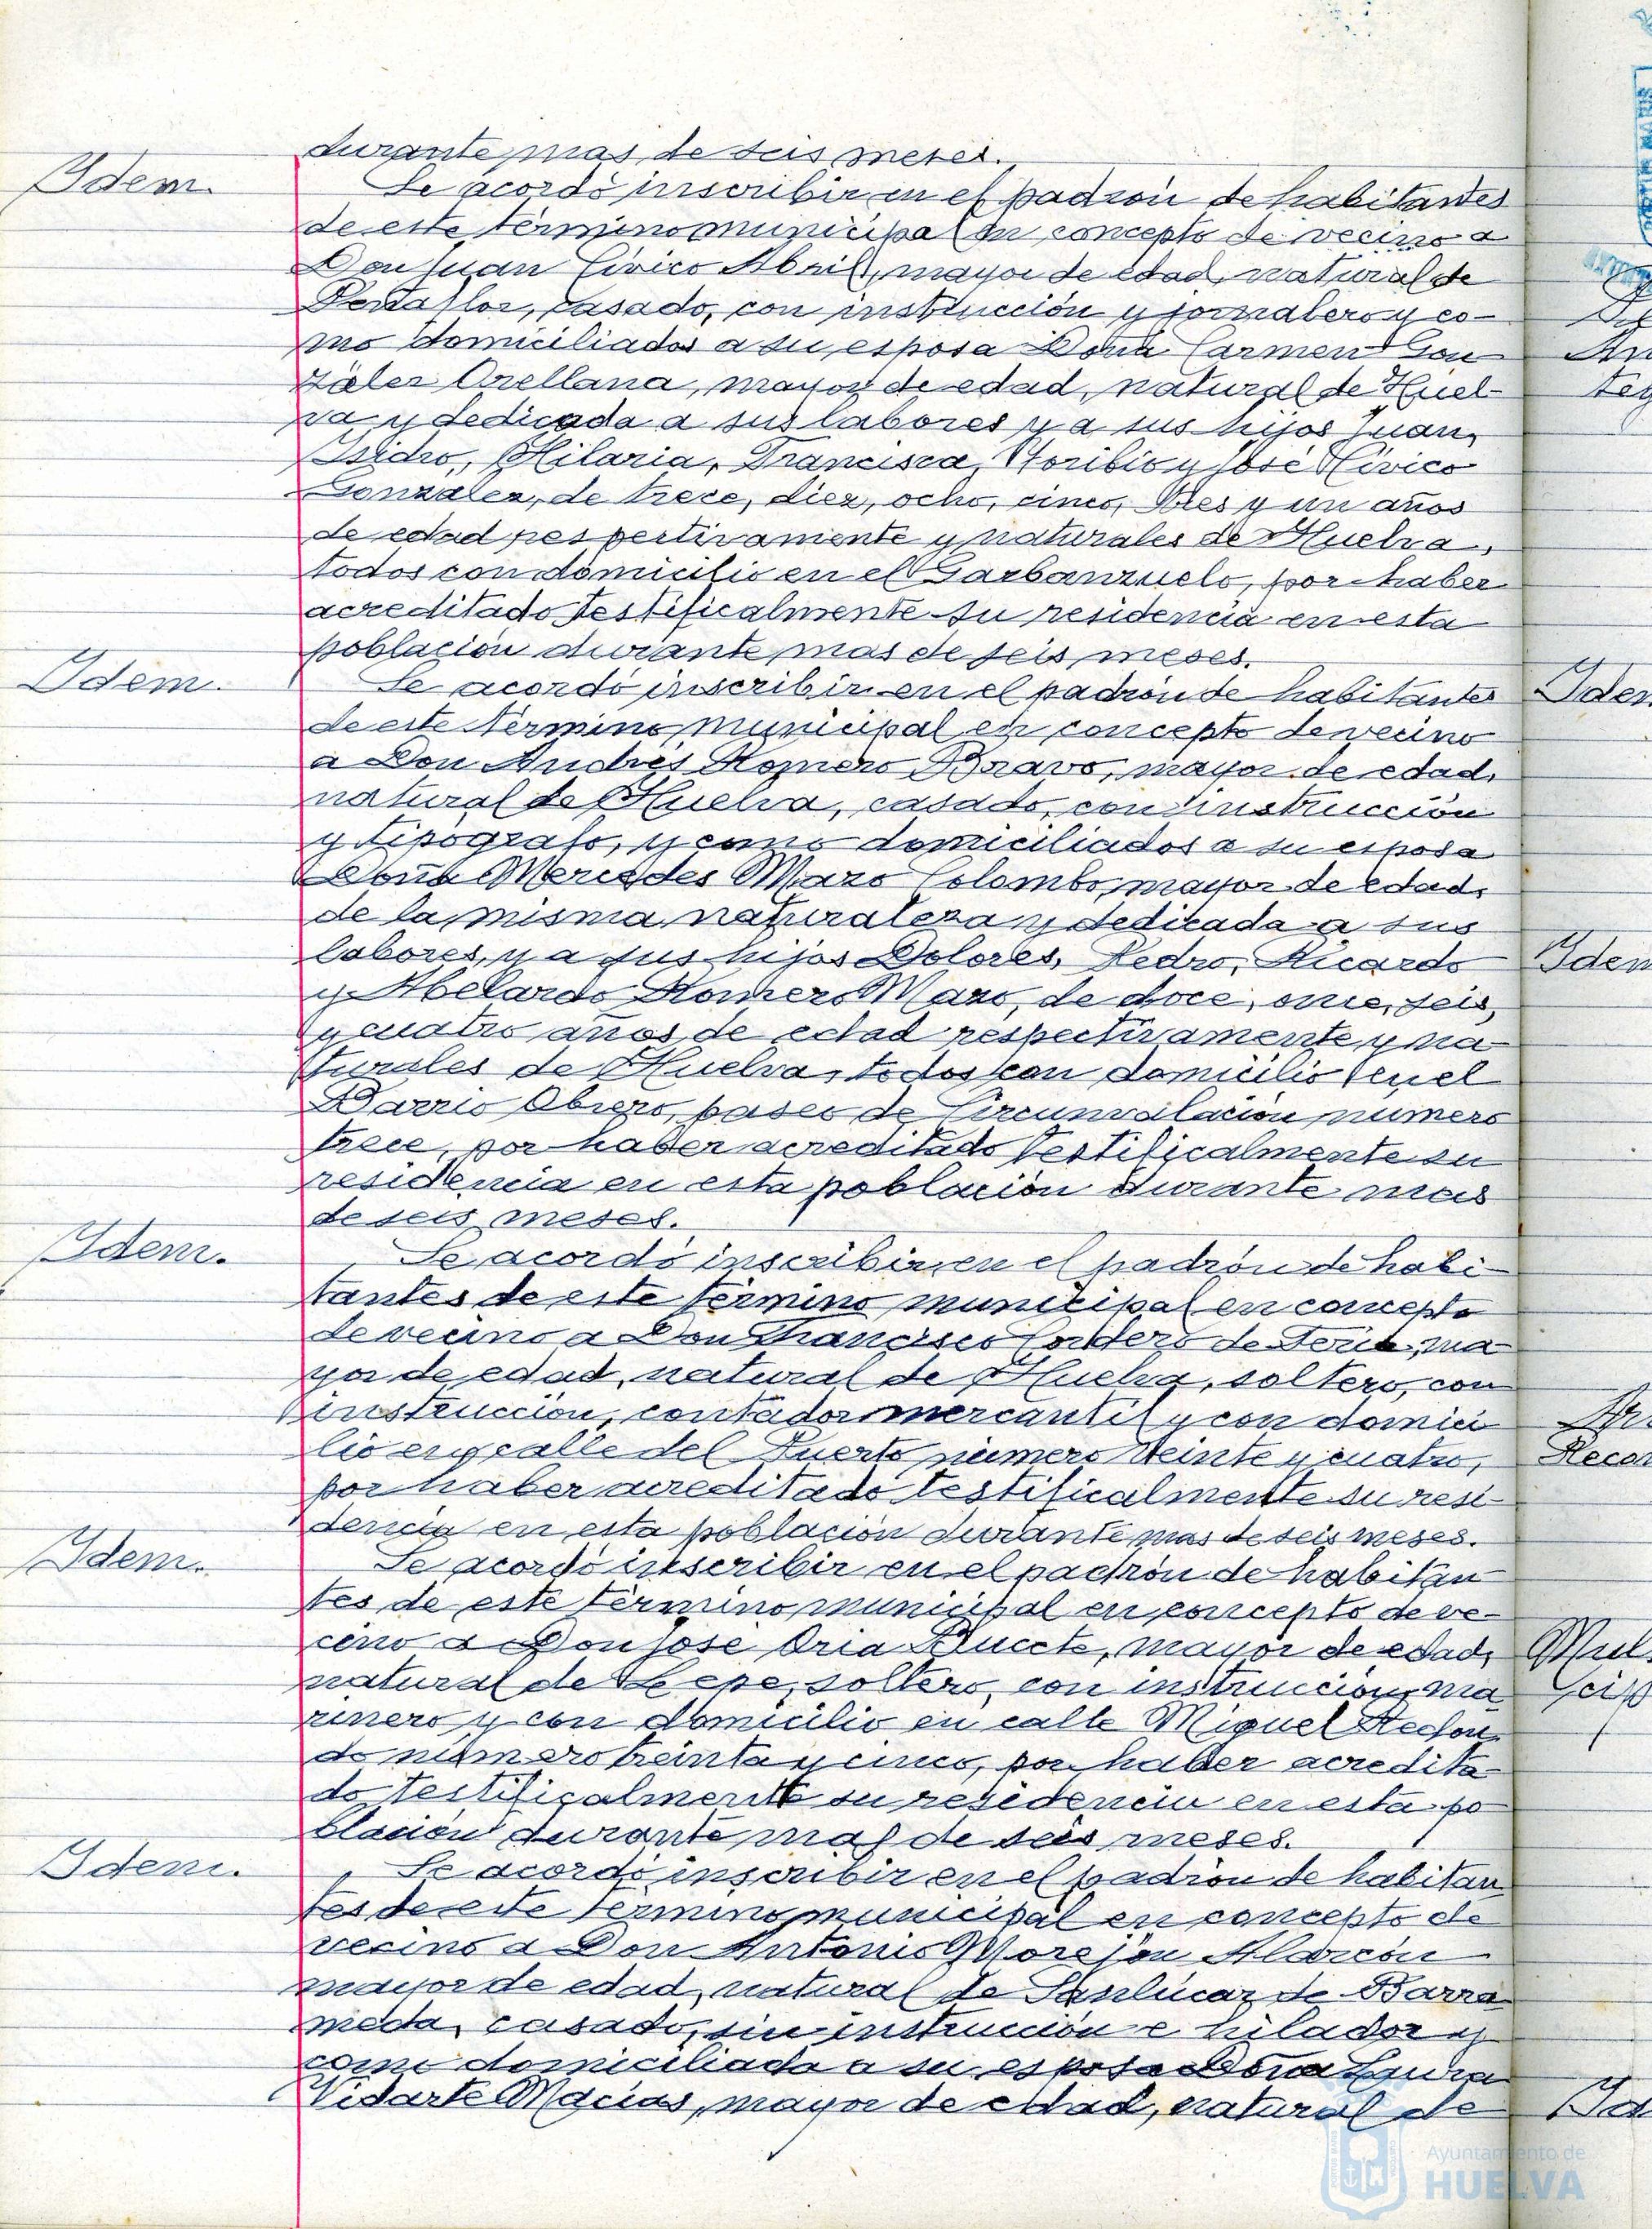 durante mas de seis meses.
Idem.
Se acordó inscribir en el padrón de habitantes
de este término municipal en concepto de vecino a
Don Juan Cívico Abril, mayor de edad, natural de
Peñaflor, casado, con instrucción y jornalero y co-
mo domiciliados a su esposa Doña Carmen Gon
zález Orellana, mayor de edad, natural de Huel-
va y dedicada a sus labores y a sus hijos Juan,
Isidro, Hilaria, Francisca, Toribio y José Cívico
Gonzalez, de trece, diez, ocho, cinco, tres y un años
de edad respectivamente y naturales de Huelva,
todos con domicilio en el Garbanzuelo, por haber
acreditado testificalmente su residencia en esta
población durante mas de seis meses.
Idem.
Se acordó inscribir en el padrón de habitantes
de este término municipal en concepto de vecino
a Don Andrés Romero Bravo, mayor de edad,
natural de Huelva, casado, con instrucción
y tipógrafo, y como domiciliados a su esposa
Doña Mercedes Mazo Colombo, mayor de edad,
de la misma naturaleza y dedicada a sus
labores, y a sus hijos Dolores, Pedro, Ricardo
y Abelardo Romero Mazo, de doce, once, seis,
y cuatro años de edad respectivamente y na
turales de Huelva, todos con domicilio en el
Barrio Obrero, paseo de Circunvalación número
trece, por haber acreditado testificalmente su
residencia en esta población durante mas
de seis meses.
Idem.
Se acordó inscribir en el padrón de habi-
tantes de este término municipal en concepto
de vecino a Don Francisco Cordero de Soria, ma
yor de edad, natural de Huelva, soltero, con
instrucción, contador mercantil y con domici
lio en calle del Puerto número veinte y cuatro,
por haber acreditado testificalmente su resi-
dencia en esta población durante mas de seis meses.
Idem.
Se acordó inscribir en el padrón de habitan
tes de este término municipal en concepto de ve-
cino a Don José Oria, mayor de edad,
natural de Lepe, soltero, con instrucción, ma
rinero y con domicilio en calle Miguel Redon
do número treinta y cinco, por haber acredita
do testificalmente su residencia en esta po
blación durante mas de seis meses.
Idem.
Se acordó inscribir en el padrón de habitan
tes de este término municipal en concepto de
vecino a Don Antonio Morejón Alarcón
mayor de edad, natural de Sanlúcar de Barra
meda, casado, sin instrucción e hilador y
como domiciliada a su esposa Doña Laura
Vidarte Macías, mayor de edad, natural de
Ayuntamiento de
HUELVA